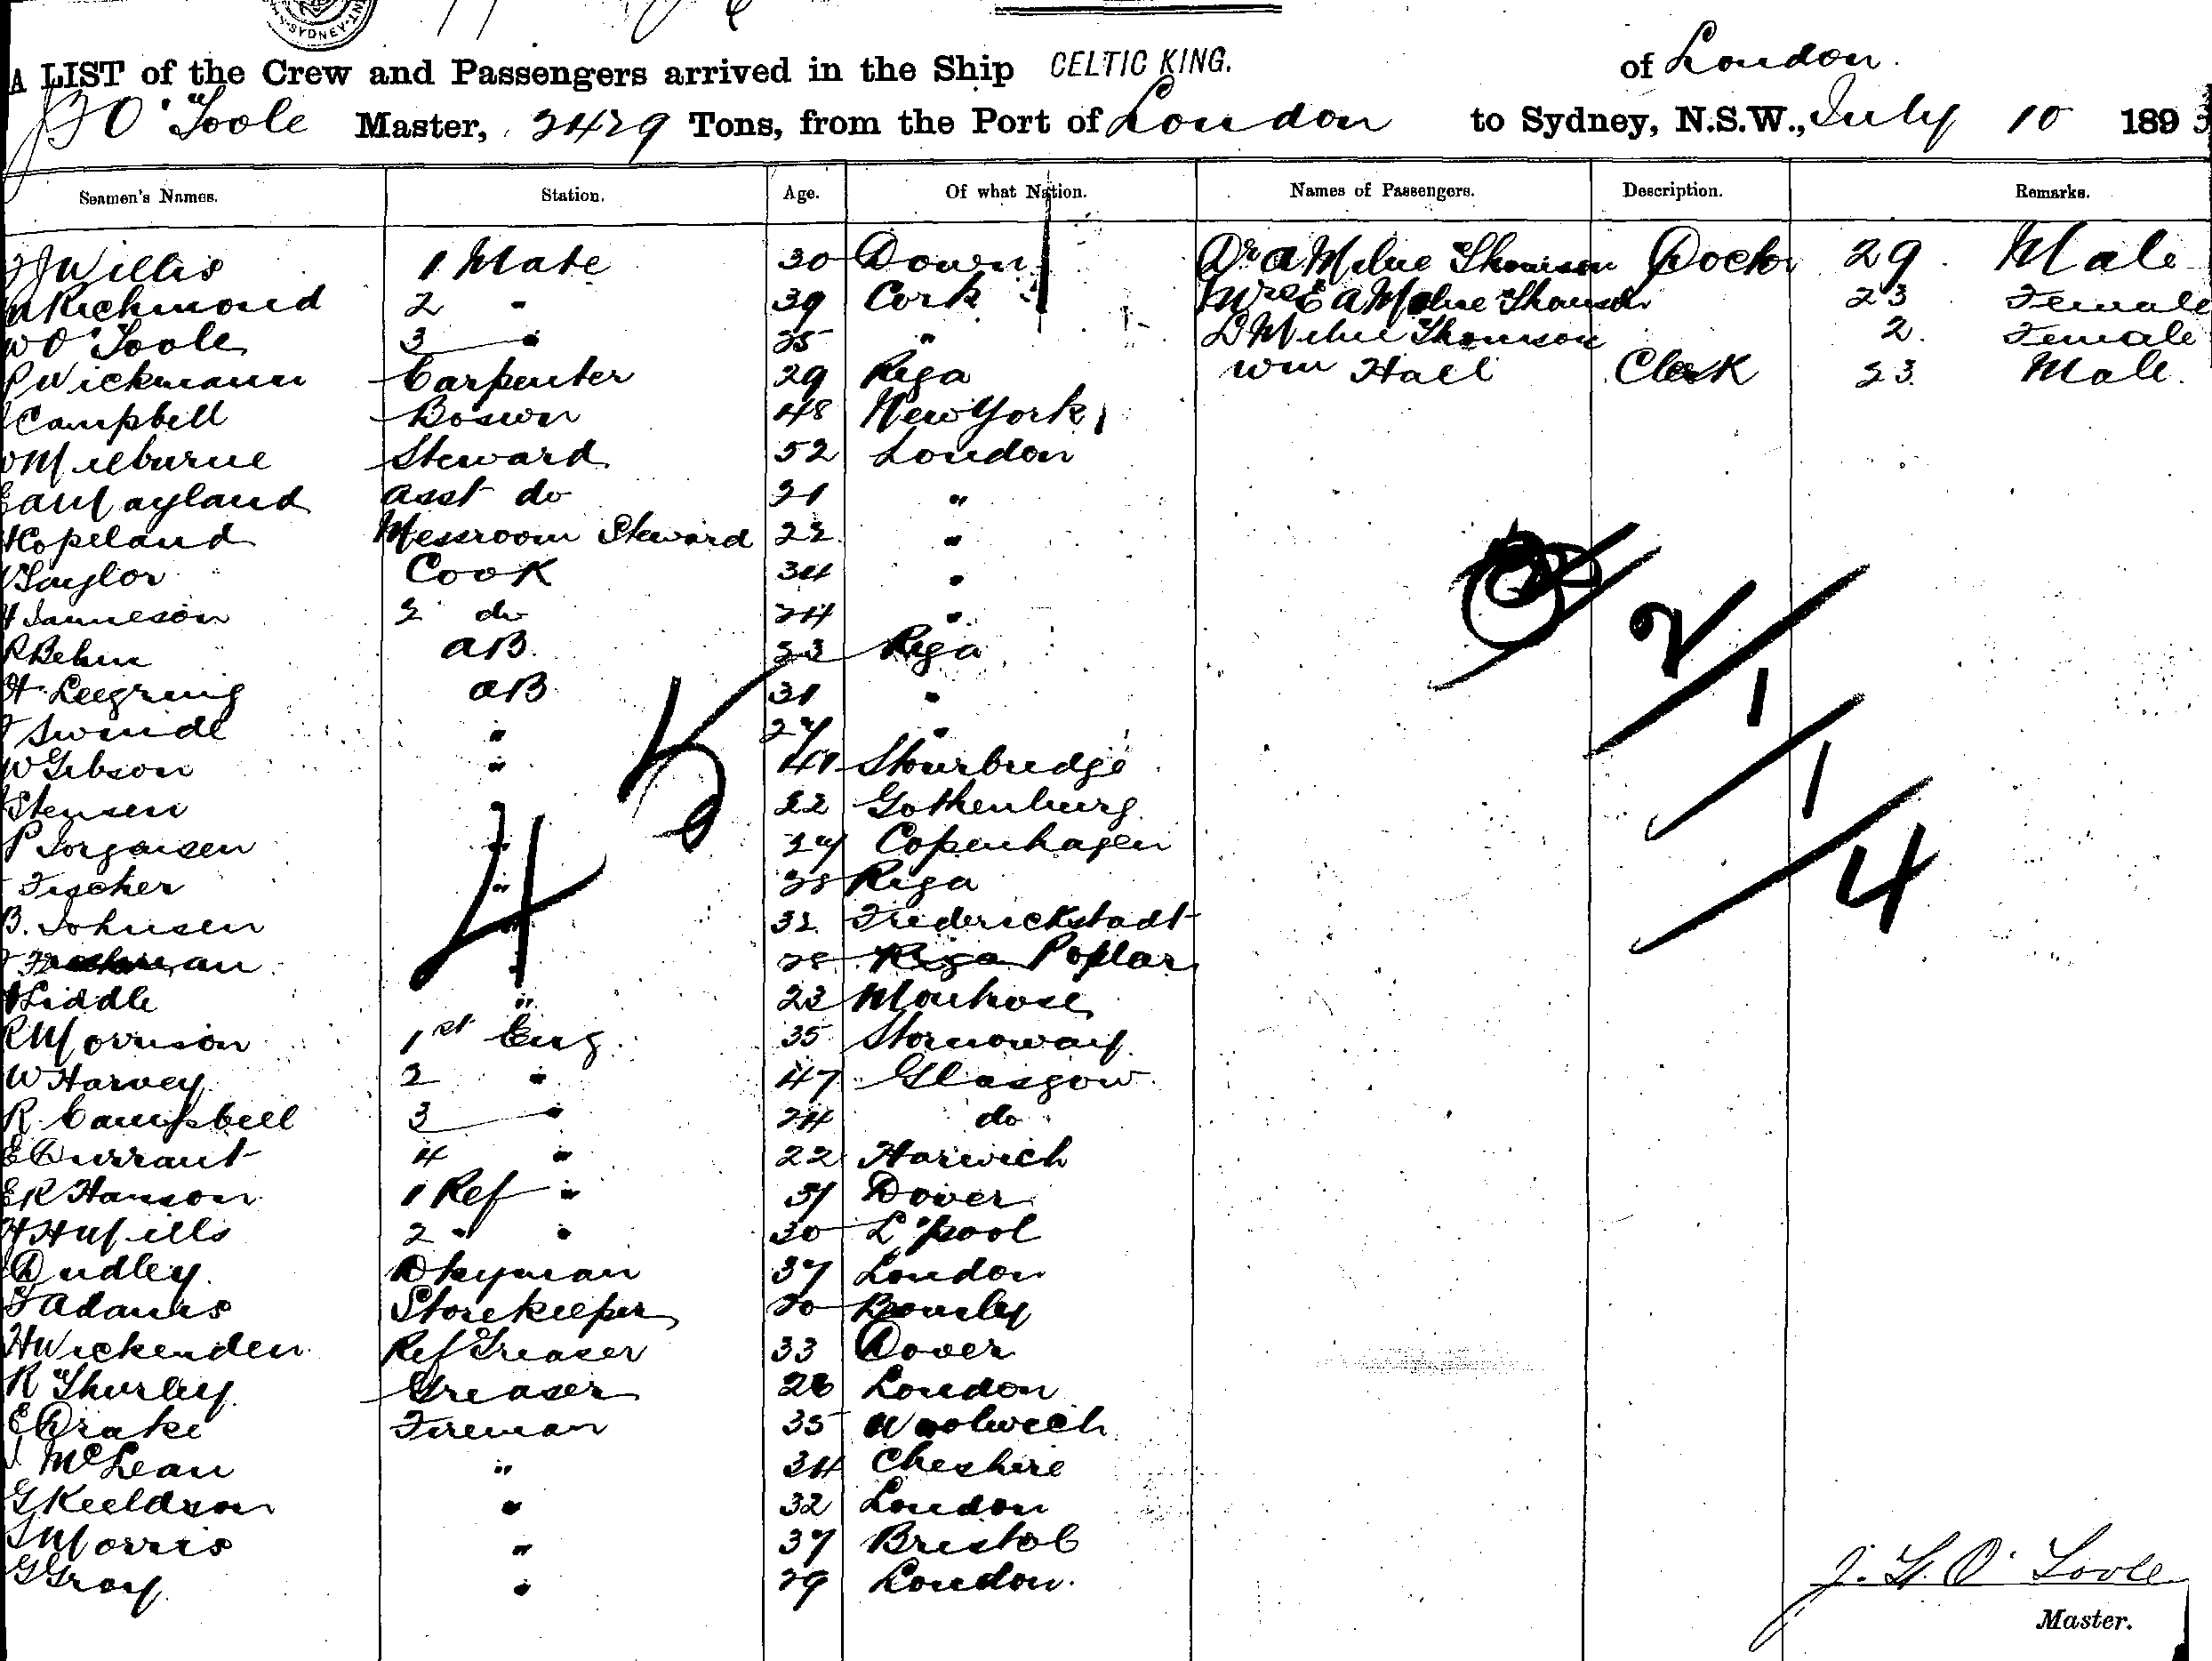 SYDNEY
A LIST of the Crew and Passengers arrived in the Ship CELTIC KING. of London.
O'Toole Master, 2429 Tons, from the Port of London to Sydney, N.S.W., July 10 1893
Seamen's Names. Station. Age. Of what Nation. Names of Passengers. Description. Remarks.
Willis 1 Mate 30 Down Dr A Milne Thomson Doctor 29 Male
Richmond 2 " 39 Cork Mrs E A Milne Thomson 23 Female
W O'Toole 3 " 25 " D Milne Thomson 2. Female
P Wickmann Carpenter 29 Riga Wm Hall Clerk 23 Male.
Campbell Boswn 48 New York
Milburne Steward 52 London
E A Wayland Asst do 21 "
H Copeland Messroom Steward 22 "
Taylor Cook 34 "
Jameson 2 do 24 "
R Behm AB. 23 Riga
H Leegring AB 31 "
Swindl " 27 "
W Gibson " 41 Stourbridge
Stensen " 22 Gothenburg
P Jorgensen " 27 Copenhagen
Fischer " 28 Riga
B. Johnsen " 32 Frederickstadt
" 28 Riga Poplar
Liddle " 23 Montrose
R Morrison 1st Eng 35 Stornoway
W Harvey 2 " 47 Glasgow
R Campbell 3 " 24 do
E Currant 4 " 22 Harwich
E R Hanson 1 Ref " 31 Dover
2 " " 30 L'pool
Dudley Dkyman 37 London
Adams Storekeeper 20 Bromley
H Wickenden Ref Greaser 33 Dover
R Thurley Greaser 28 London
E Drake Fireman 35 Woolwich
McLean " 34 Cheshire
G Keeldson " 32 London
Morris " 37 Bristol
G Gray " 29 London.
2/
1/
1/
4
45
J. G. O'Toole
Master.